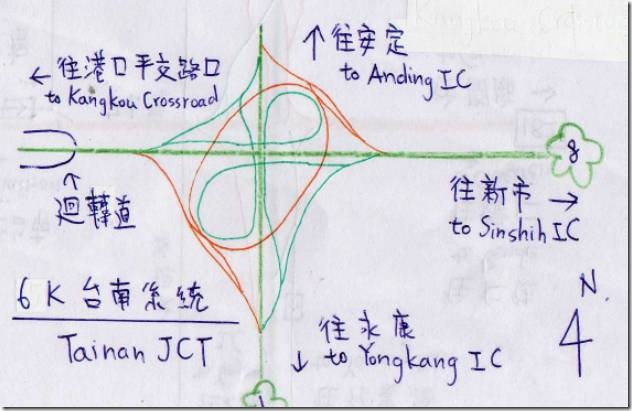 ← 往港口平交路口
to Kangkou Crossroad
↑ 往安定
to Anding IC
8
往新市 →
to Sinshih IC
↑
迴轉道
6K 台南系統
Tainan JCT
往永康
↓ to Yongkang IC
N.
1